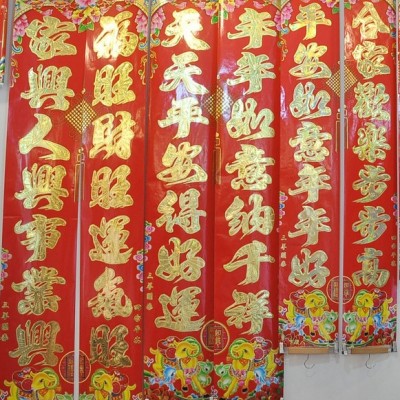 合家歡樂步步高
平安如意年年好
年年如意納千祥
天天平安得好運
福旺財旺運氣旺
家興人興事業興